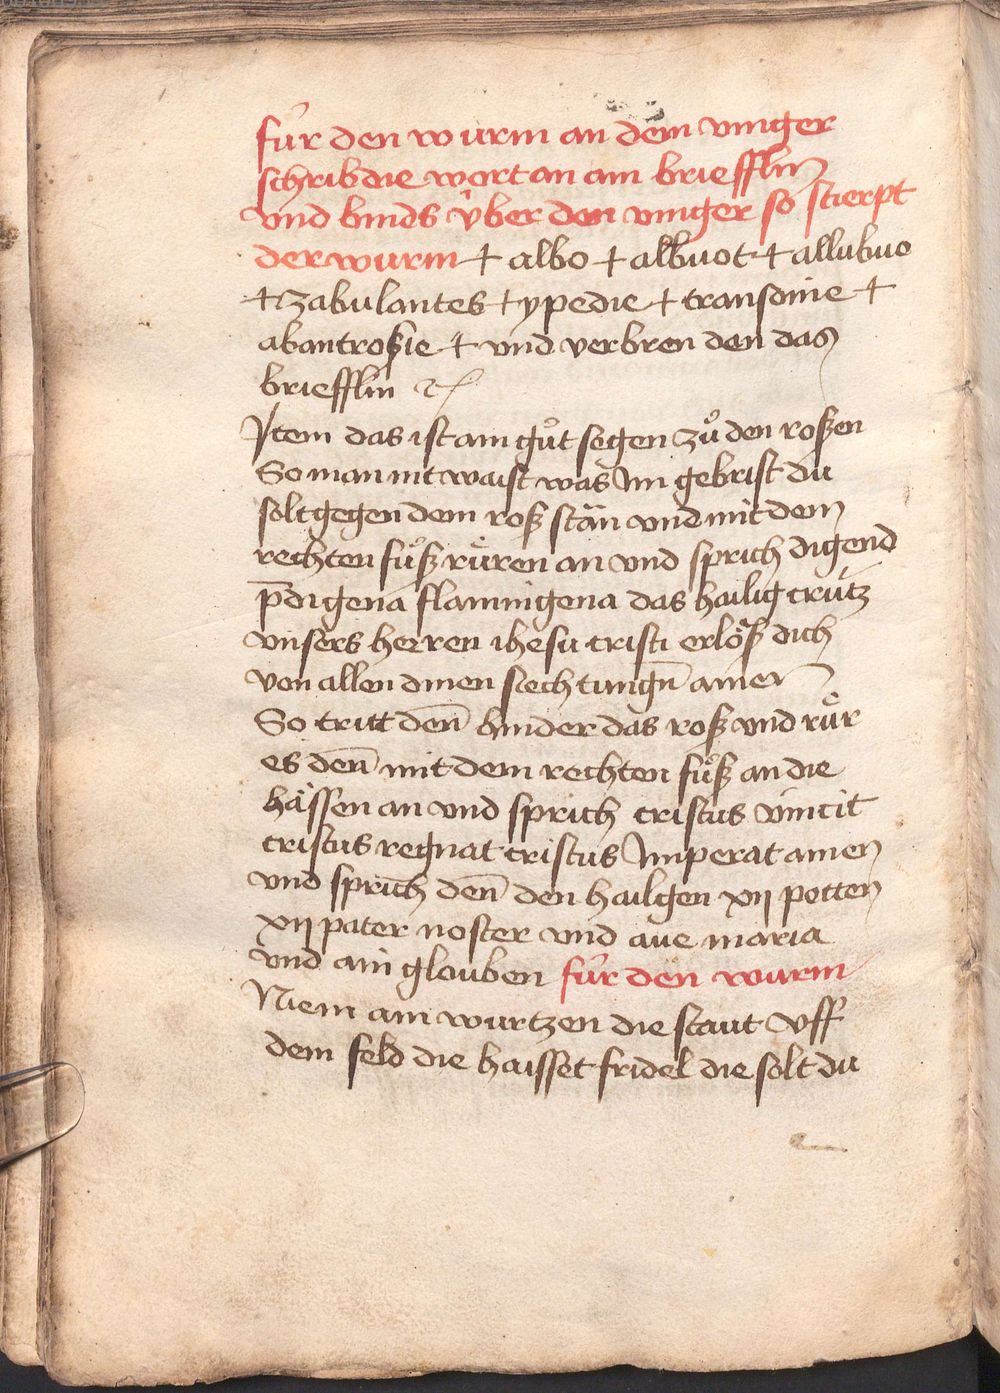 fúr den wurm an dem vinger
schrib die wort an ain briefflin
vnd binds v́ber den vinger so stierpt
der wurm + albo + albuot + allubuo
+ zabulantes + ypedie + transdine +
abantroßie + vnd verbren den das
briefflin ꝛc
Jtem das ist ain guͦt segen zuͦ den roßen
So man nit waist was Im gebrist du
solt gegen dem roß stän vnd mit dem
rechten fuͦß ruͤren an vnd sprich digend
p̄digena flamingena das hailig crútz
vnsers herren ihesu cristi erlöß dich
von allen dinen siechtungn̄ amen
So tritt den̄ hinder das roß vnd ruͤr
es den̄ mit dem rechten fuͦß an die
hässen an vnd sprich cristus vincit
cristus regnat cristus Imperat amen
vnd sprich den̄ den hailgen xij potten
xij pater noster vnd aue maria
vnd ain glouben fúr den wurm
Niem ain wurtzen die staut vff
dem feld die haisset fridel die solt du